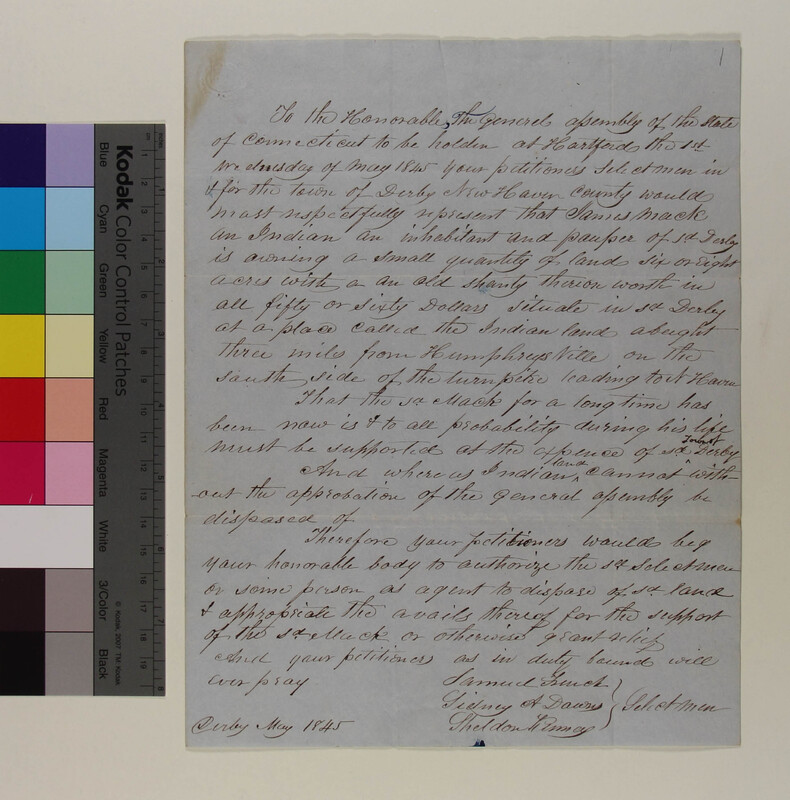 1
To the Honorable, The general assembly of the state
of Connecticut to be holden at Hartford the 1st
wednesday of may 1845 your petitioners Select men in
& for the town of Derby New Haven County would
most respectfully represent that James Mack
an Indian an inhabitant and pauper of sd Derby
is owning a small quantity of land six or eight
acres with a an old shanty thereon worth in
all fifty or sixty Dollars situate in sd Derby
at a place called the Indian land abught
three miles from Humphreys Ville on the
south side of the turnpike leading to N Haven
That the sd Mack for a long time has
been now is & to all probability during his life
must be supported at the expence of sd Town of Derby
And where as Indian land cannot with-
-out the approbation of the general assembly be
disposed of
Therefore your petitioners would beg
your honorable body to authorize the sd Select men
or some person as agent to dispose of sd land
& appropriate the avails thereof for the support
of the sd Mack or otherwise grant relief
And your petitioners as in duty bound will
ever pray
Samuel French
Sidney A Downs
Sheldon Kinney
Select men
Derby May 1845
Kodak Color Control Patches
Blue
Cyan
Green
Yellow
Red
Magenta
White
3/Color
Black
© Kodak, 2007 TM: Kodak
1
2
3
4
5
6
7
8
9
10
11
12
13
14
15
16
17
18
19